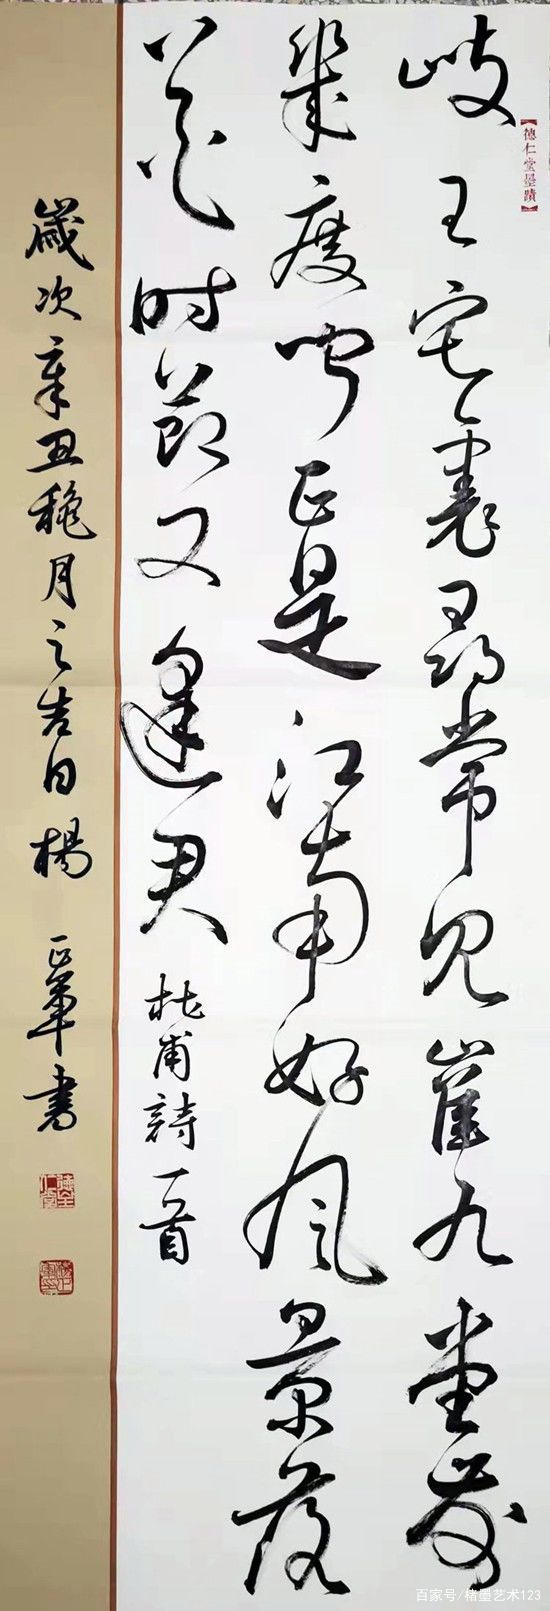 【德仁堂墨蹟】
岐王宅裏尋常見崔九堂前
幾度聞正是江南好風景落
花时節又逢君 杜甫詩一首
歲次辛丑穐月之吉日楊 軍書
百家号/楮墨艺术123